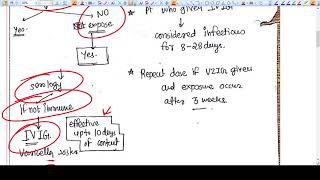 NO
Yes.
Not expose
Yes.
serology
If not immune
IVIG.
Varicella
effective
upto 10 days
of contact
* Pt who given IVIG
considered infectious
for 8-28 days.
* Repeat dose if VZIG given
and exposure occur
after 3 weeks.